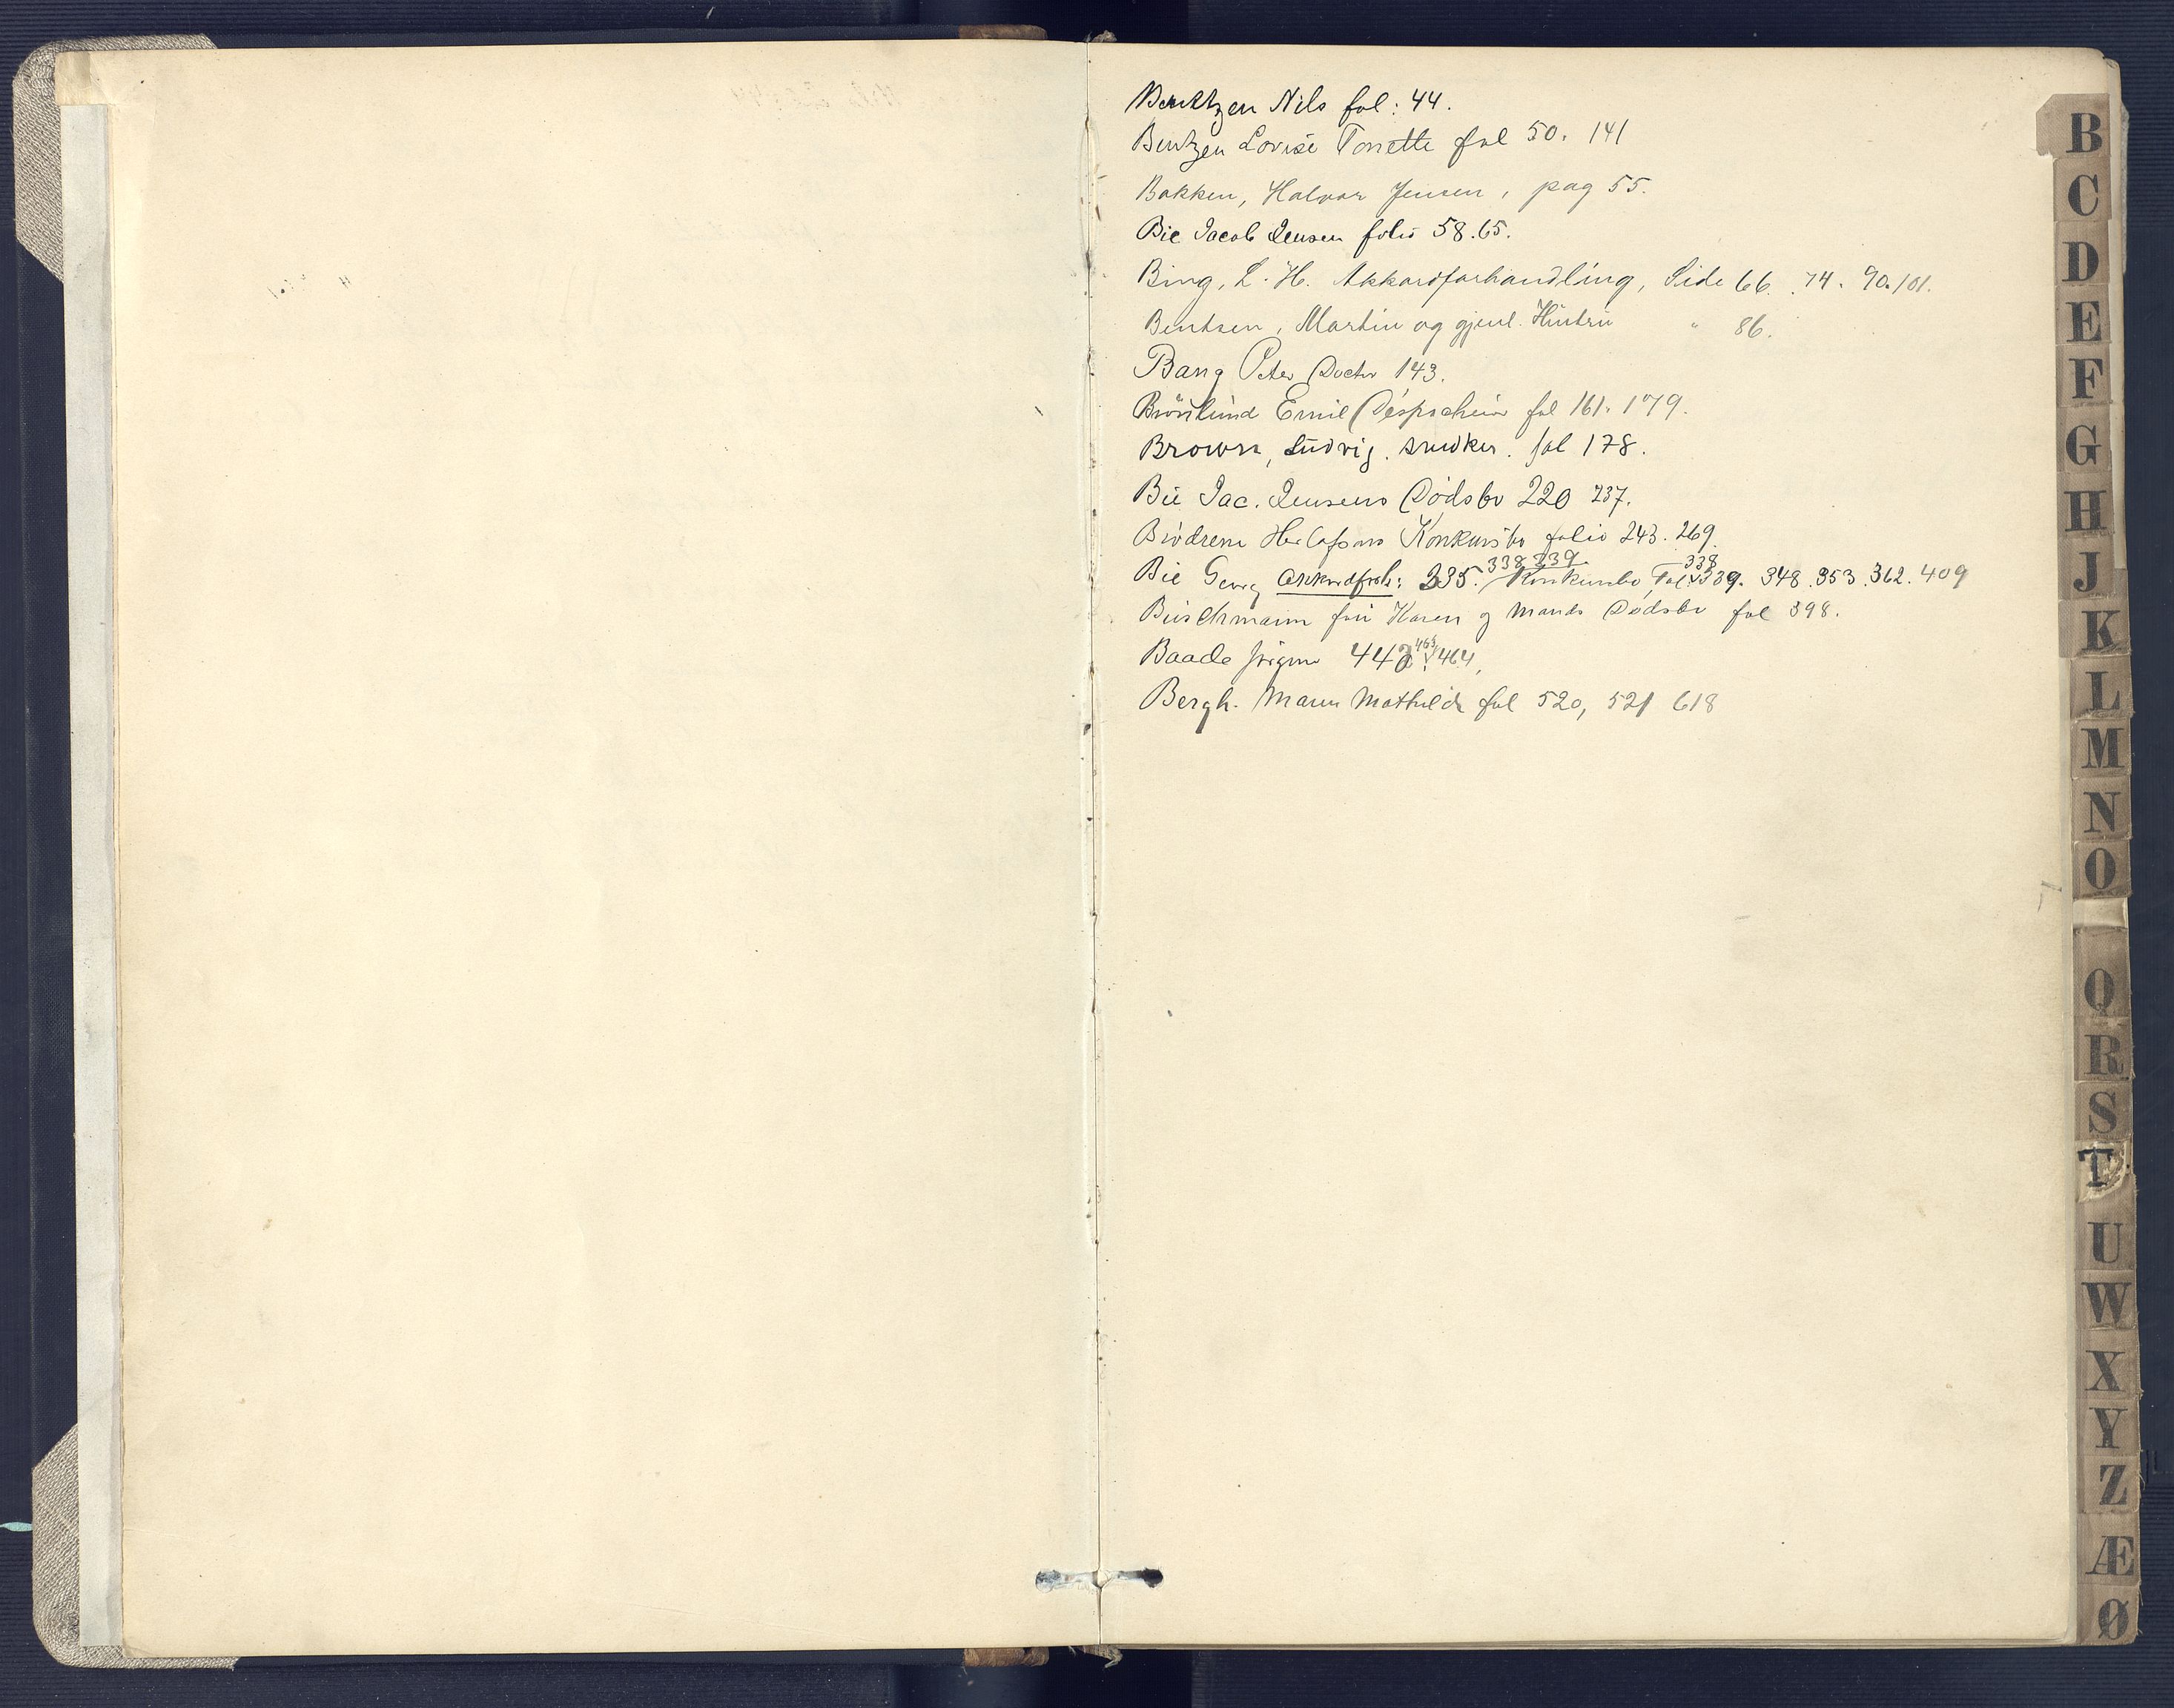 Bentzen Nils fol: 44.
Bentzen Lovise Tonette fol 50. 141
Bakken, Halvor Jensen, pag 55.
Bie Jacob Jensen folio 58.65.
Bing, L. H. Akkordforhandling, Side 66. 74. 90.101.
Bentsen, Martin og gjenl. Hustru " 86.
Bang Peter Doctor 143.
Emil fol 161. 179.
Brown, Ludvig. snedker. fol 178.
Bie Jac. Jensens Dødsbo 220 237.
Brødrene Konkursbo folio 243. 269.
338 339 338
Bie Georg Akkordforh: 335. Konkursbo, Fol. 339. 348. 353. 362. 409
Buschmann fru Karen og Mands Dødsbo fol 398.
463
Baade 443. 464,
Bergh. Maren Mathilde fol 520, 521 618
B
C
D
E
F
G
H
J
K
L
M
N
O
Q
R
S
T
U
W
X
Y
Z
Æ
Ø